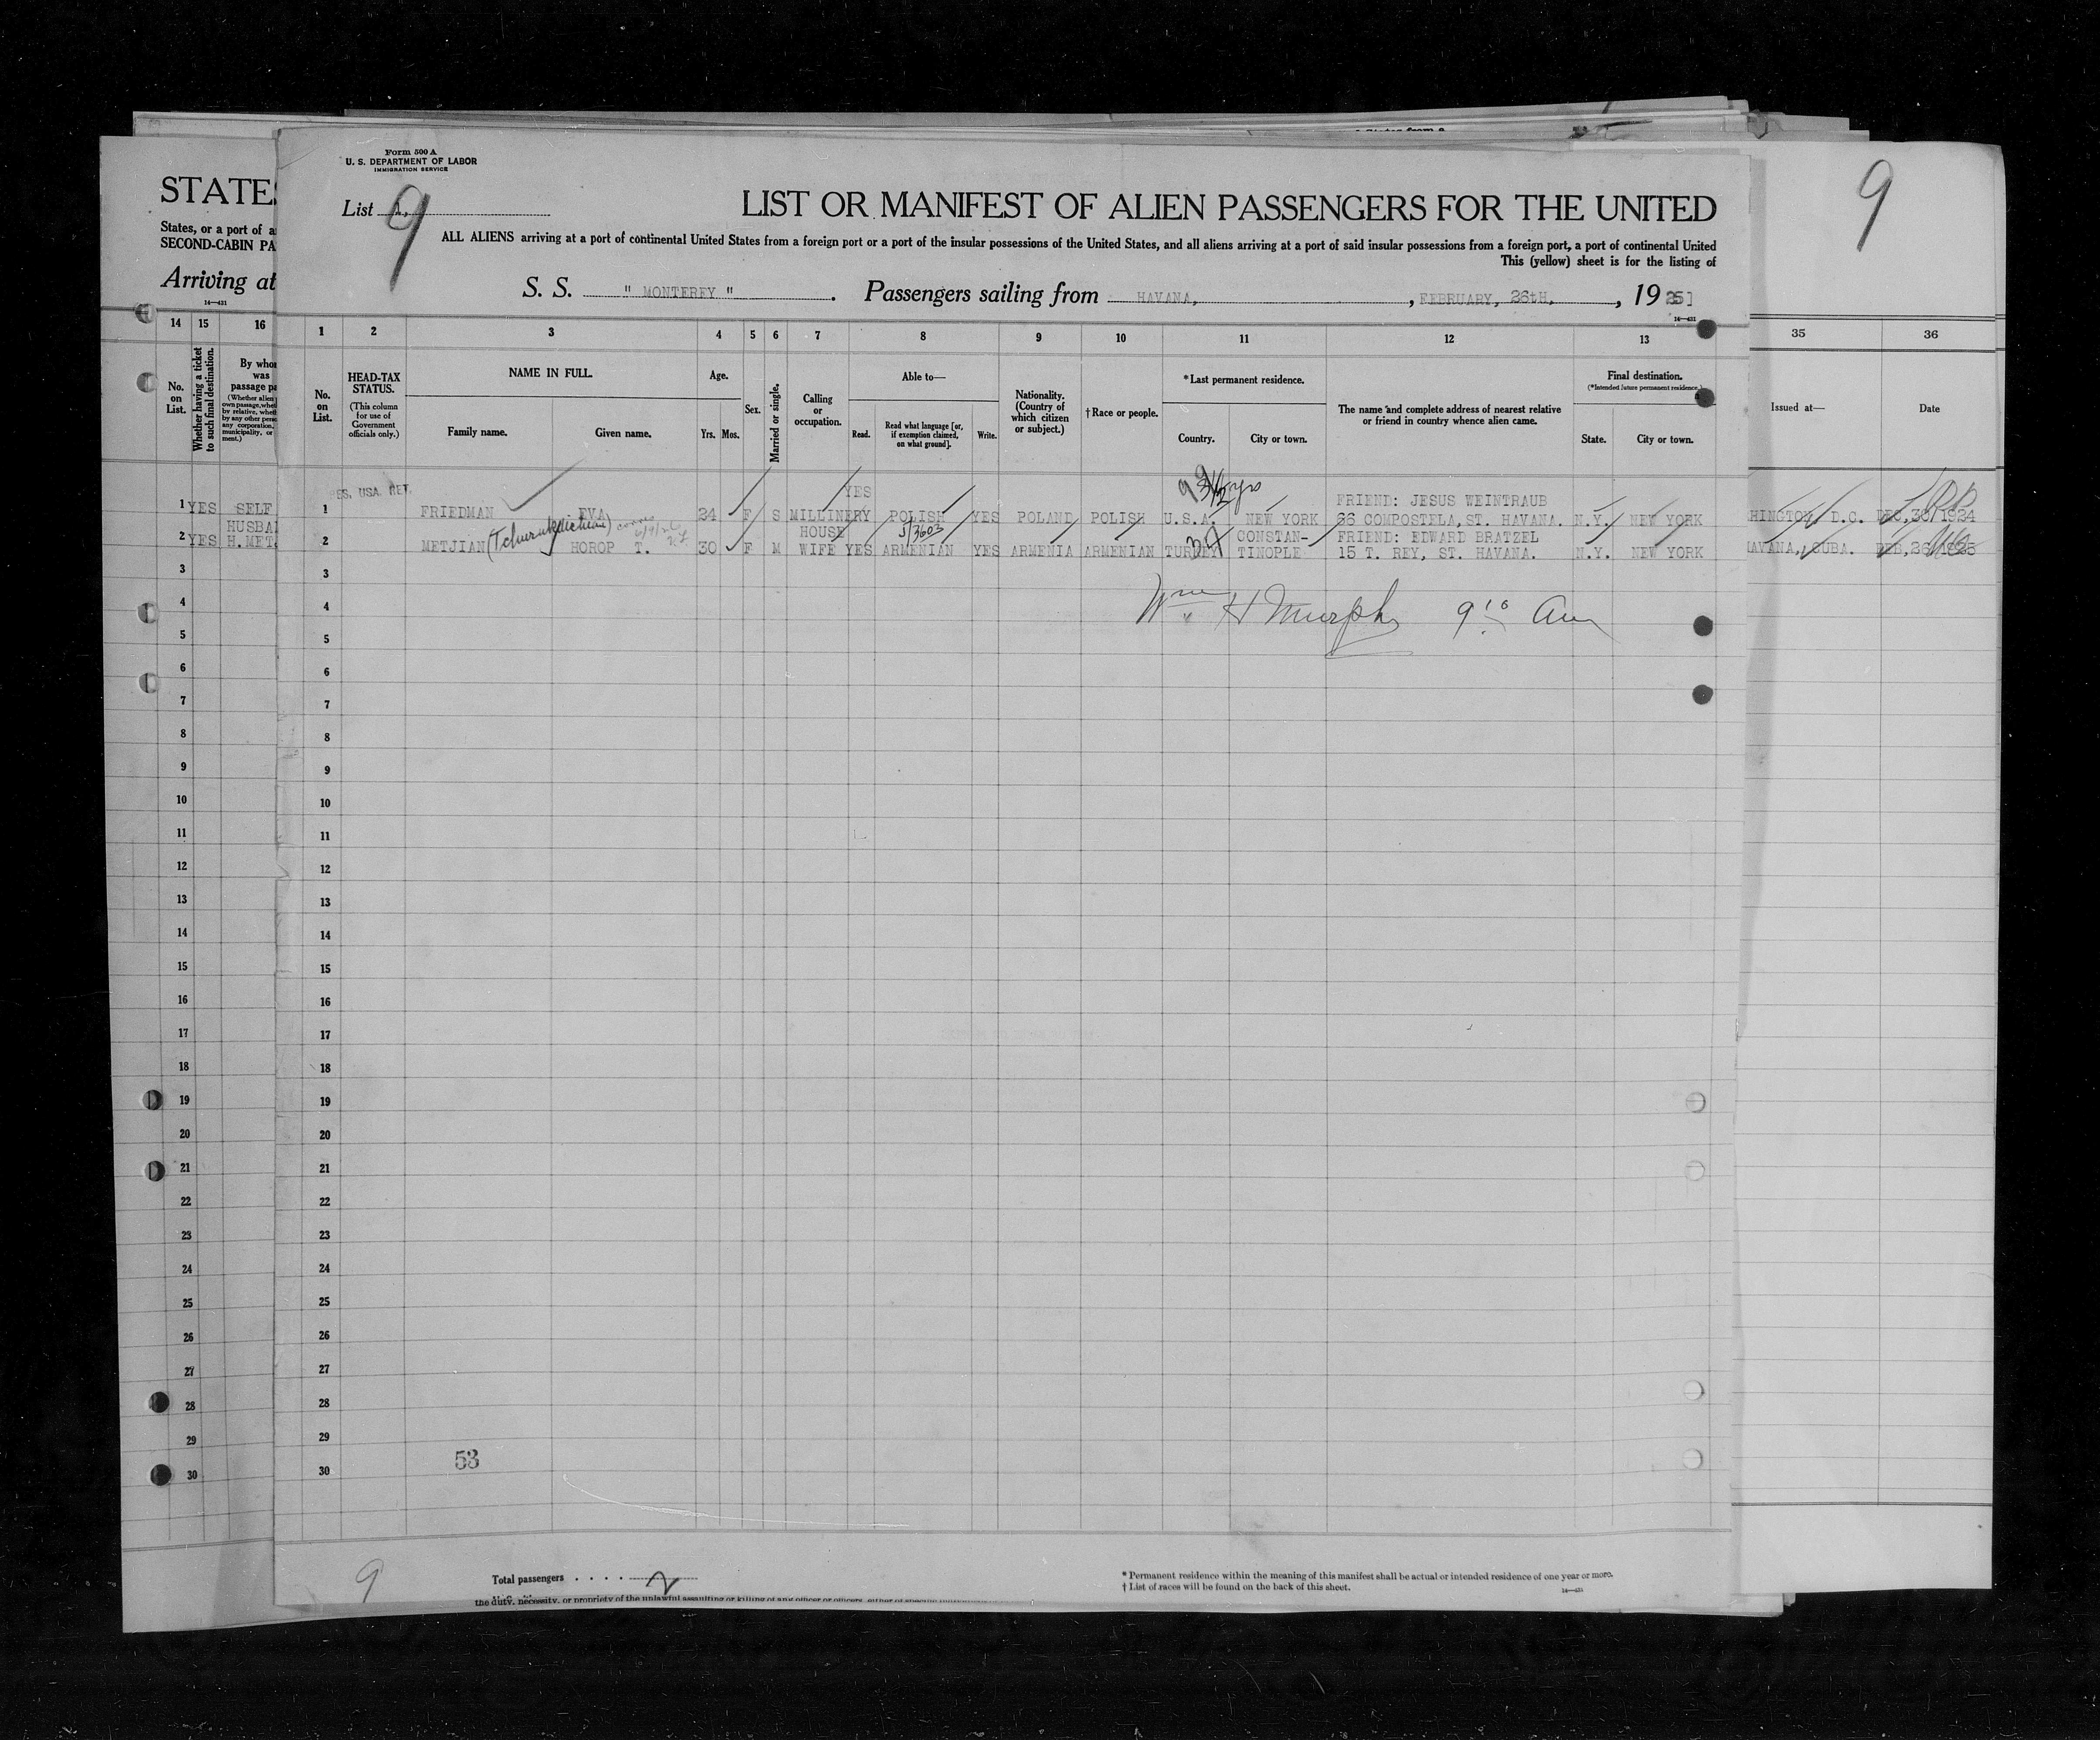 Form 500 A
U. S. DEPARTMENT OF LABOR
IMMIGRATION SERVICE
List 1,
9
9
STATES
LIST OR MANIFEST OF ALIEN PASSENGERS FOR THE UNITED
States, or a port of a
SECOND-CABIN PA
ALL ALIENS arriving at a port of continental United States from a foreign port or a port of the insular possessions of the United States, and all aliens arriving at a port of said insular possessions from a foreign port, a port of continental United
This (yellow) sheet is for the listing of
Arriving at
14—431
S. S. " MONTEREY ". Passengers sailing from HAVANA, , FEBRUARY, 26tH, , 1925
14—431
14 15 16 1 2 3 4 5 6 7 8 9 10 11 12 13 35 36
No. on List.
Whether having a ticket to such final destination.
By whom was passage pa
(Whether alien
own passage, whet
by relative, wheth
by any other perso
any corporation,
municipality, or
ment.)
No. on List.
HEAD-TAX STATUS.
(This column for use of Government officials only.)
NAME IN FULL.
Family name. Given name.
Age.
Yrs. Mos.
Sex.
Married or single.
Calling or occupation.
Able to—
Read. Read what language [or, if exemption claimed, on what ground]. Write.
Nationality. (Country of which citizen or subject.)
†Race or people.
*Last permanent residence.
Country. City or town.
The name and complete address of nearest relative or friend in country whence alien came.
Final destination.
(*Intended future permanent residence.)
State. City or town.
Issued at— Date
1 YES SELF
RES, USA RET.
1 FRIEDMAN EVA 24 F S MILLINERY YES POLISH YES POLAND POLISH U.S.A. NEW YORK FRIEND: JESUS WEINTRAUB
66 COMPOSTELA, ST. HAVANA. N.Y. NEW YORK
HINGTON, D.C. DEC, 30, 1924
3½ yrs
2 YES HUSBA
H. MET
2 METJIAN HOROP T. 30 F M HOUSE WIFE YES ARMENIAN YES ARMENIA ARMENIAN TURKEY CONSTAN-
TINOPLE FRIEND: EDWARD BRATZEL
15 T. REY, ST. HAVANA. N.Y. NEW YORK
HAVANA, CUBA. FEB, 26, 1925
Wm H Murphy 9 10 Am
3 3
4 4
5 5
6 6
7 7
8 8
9 9
10 10
11 11
12 12
13 13
14 14
15 15
16 16
17 17
18 18
19 19
20 20
21 21
22 22
23 23
24 24
25 25
26 26
27 27
28 28
29 29
53
30 30
9
Total passengers . . . . 2
* Permanent residence within the meaning of this manifest shall be actual or intended residence of one year or more.
† List of races will be found on the back of this sheet.
14—431
the duty, necessity, or propriety of the unlawful assaulting or killing of any officer or officers, either of specific